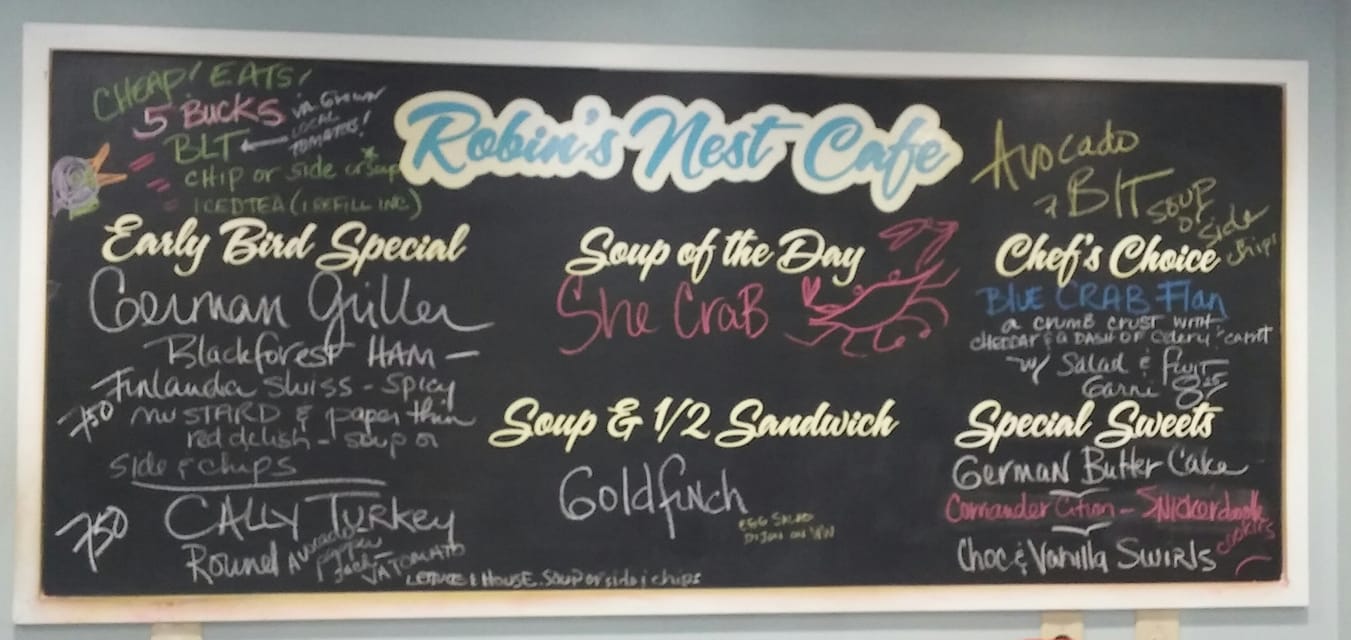 CHEAP! EATS!
5 BUCKS
VA Grown
LOCAL
TOMATOES!
BLT
CHIP or Side or Soup
ICEDTEA (1 REFILL INC)
Robin's Nest Cafe
Avocado
BLT
SOUP
or
Side
chips
Early Bird Special
German Griller
Blackforest HAM -
Finlandia Swiss - Spicy
750 MUSTARD & paper thin
red delish - soup or
Side & chips
750 CALLY TURKEY
Round Avocado
pepper
Jack
VA TOMATO
LETTUCE & HOUSE. SOUP or side & chips
Soup of the Day
She CraB
Soup & 1/2 Sandwich
Goldfinch
EGG SALAD
DIJON ON
Chef's Choice
BLUE CRAB Flan
a CRUMB CRUST WITH
CHEDDAR & a DASH OF Celery & carrot
w/ Salad & fruit
Garni 8.25
Special Sweets
German Butter Cake
Coriander Citron - Snickerdoodle
cookies
Choc & Vanilla Swirls